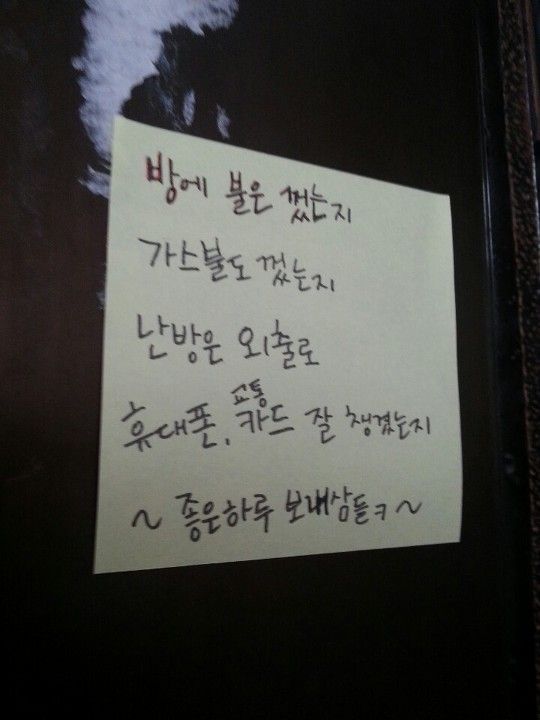 방에 불은 껐는지
가스불도 껐는지
난방은 외출로
휴대폰, 교통카드 잘 챙겼는지
~ 좋은하루 보내삼들ㅋ ~